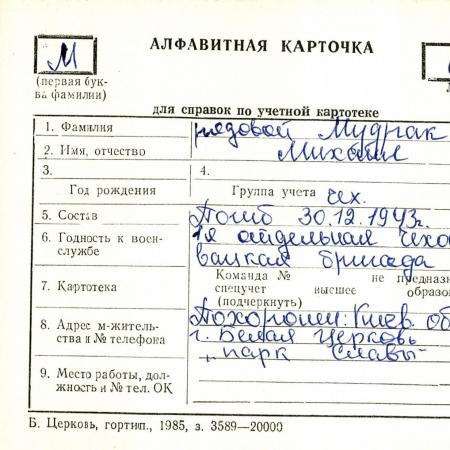 АЛФАВИТНАЯ КАРТОЧКА
М
(первая бук-
ва фамилии)
для справок по учетной картотеке
1. Фамилия рядовой Мудрак
2. Имя, отчество Михаил
3. 4.
Год рождения Группа учета чех.
5. Состав Погиб 30.12.1943г.
6. Годность к воен- 1я отдельная чехо
службе вацкая бригада
Команда № не предназн
7. Картотека спецучет высшее образо
(подчеркнуть)
8. Адрес м-житель- Похоронен: Киев. об
ства и № телефона г. Белая Церковь
„парк Славы"
9. Место работы, дол-
жность и № тел. ОК
Б. Церковь, гортип., 1985, з. 3589—20000